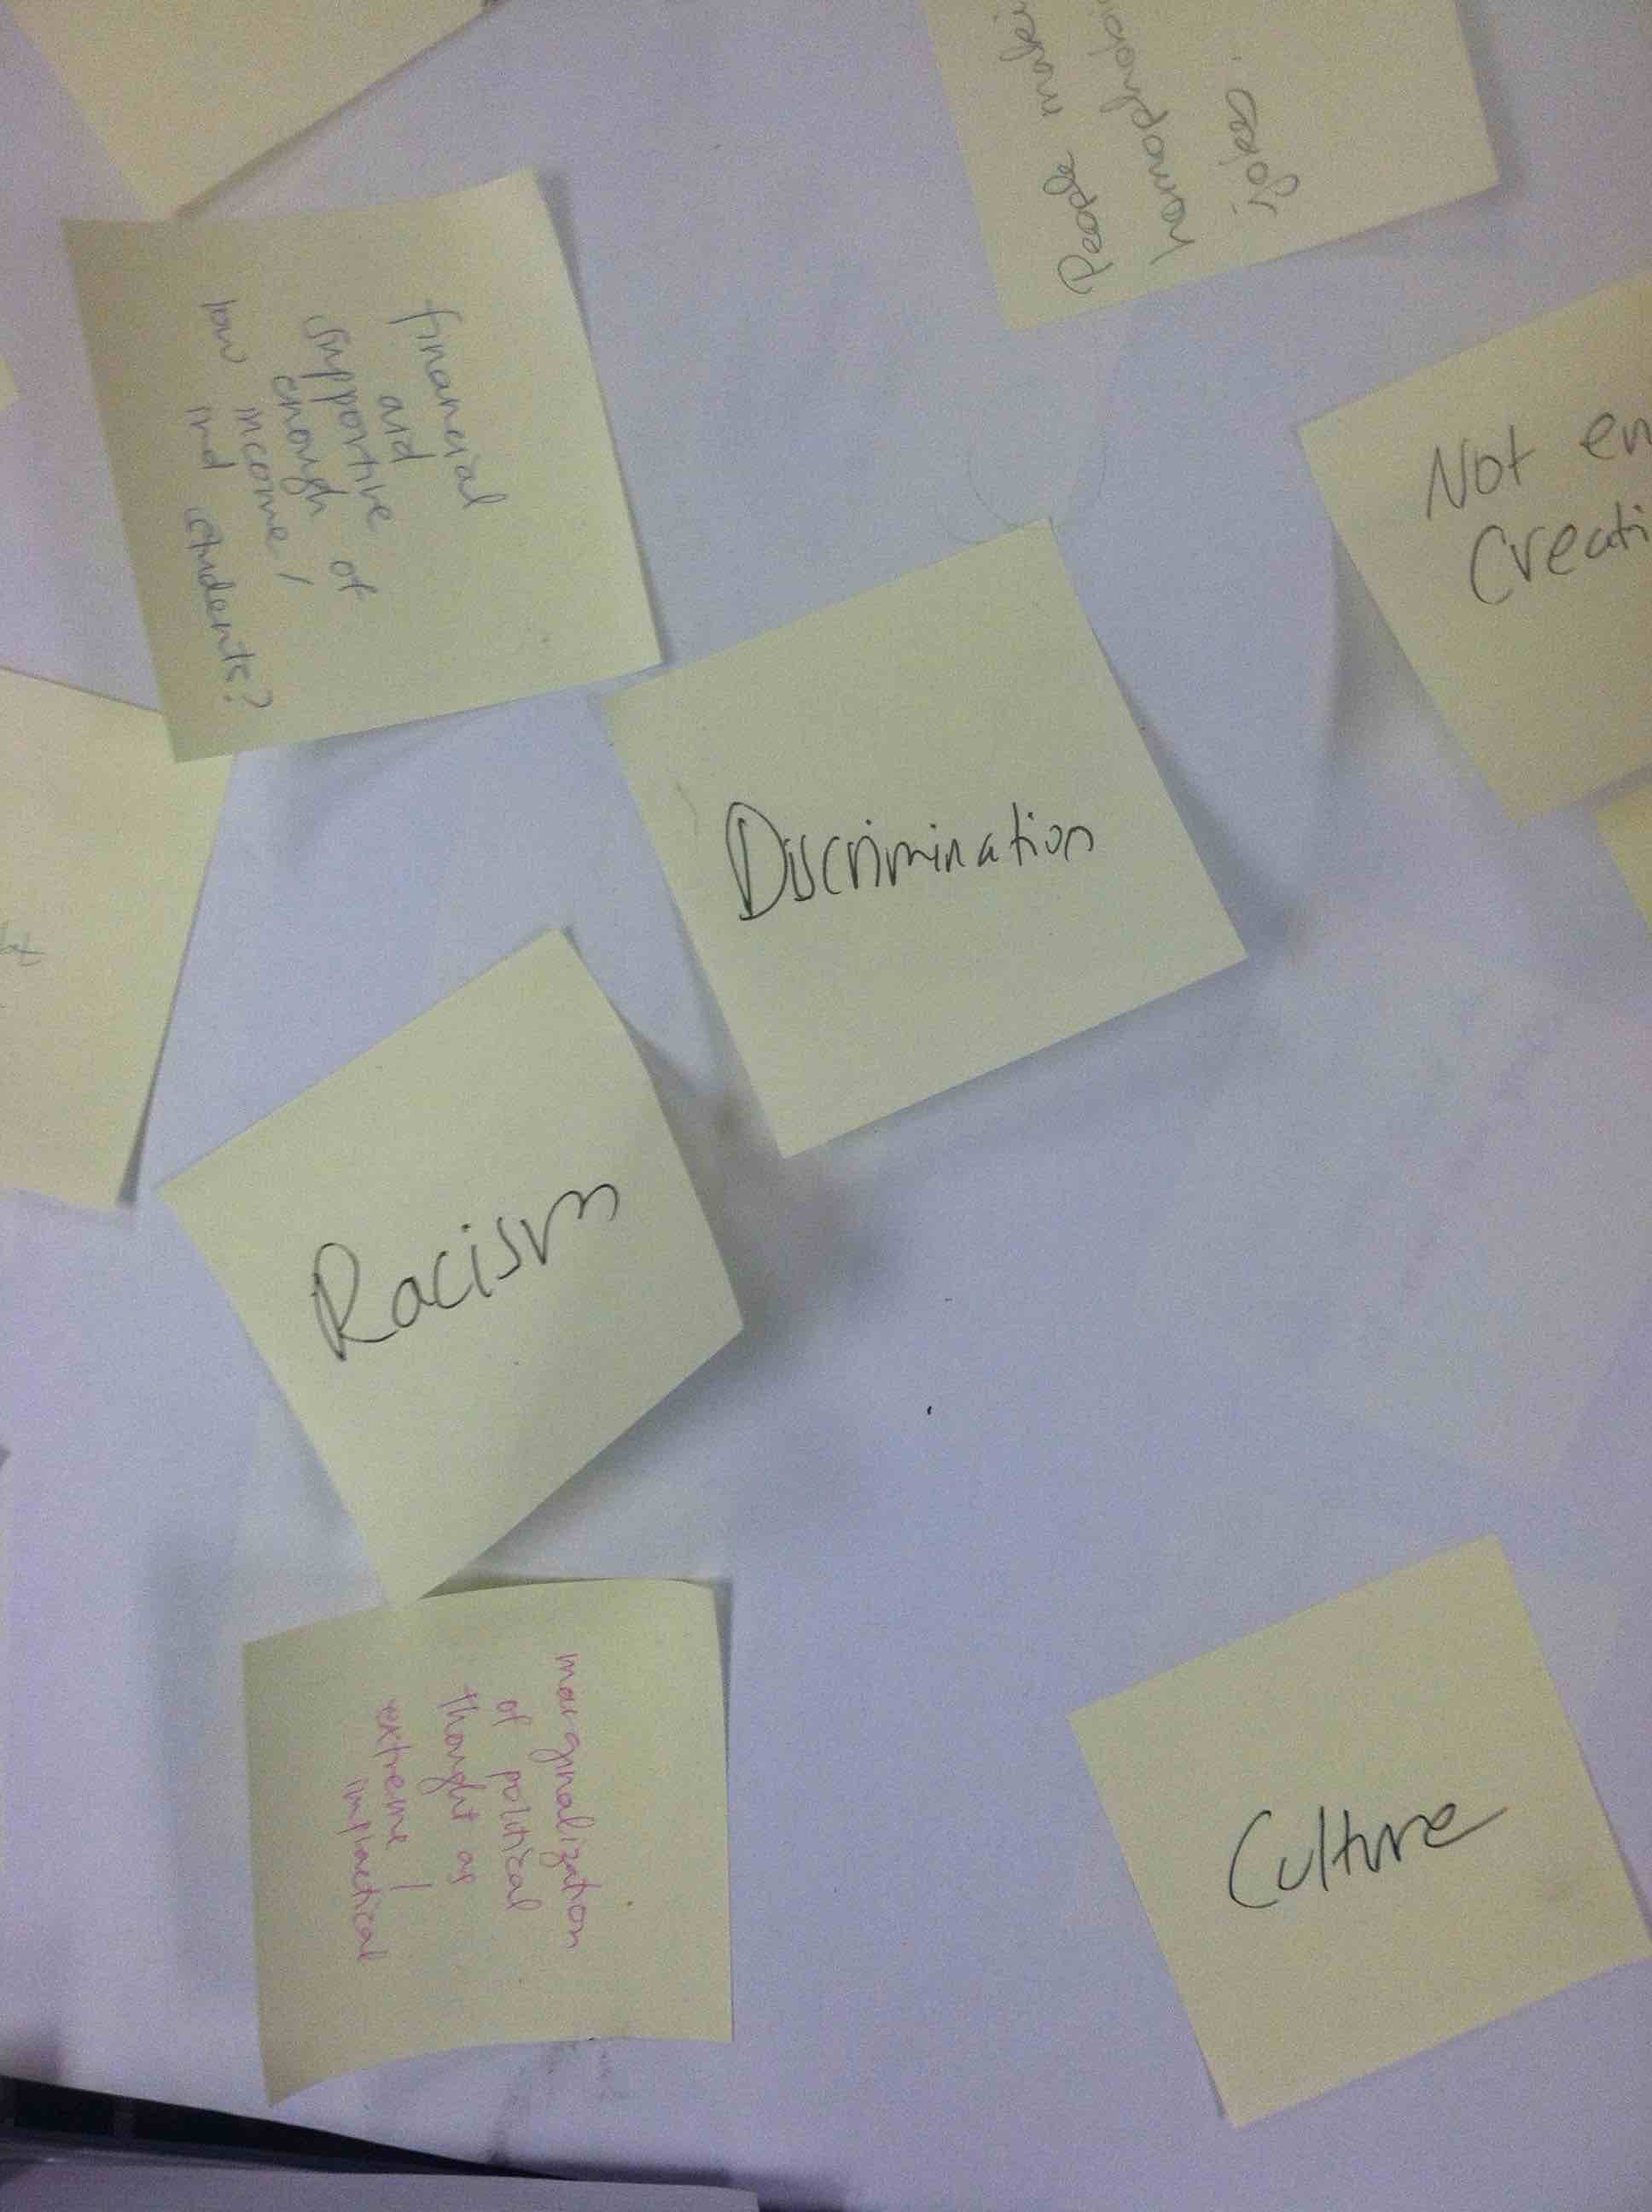 People maki
homophobi
jokes.
financial
aid
supportive
enough of
low income /
ind students?
Not en
Creati
Discrimination
Racism
marginalization
of political
thought as
extreme /
impractical
Culture